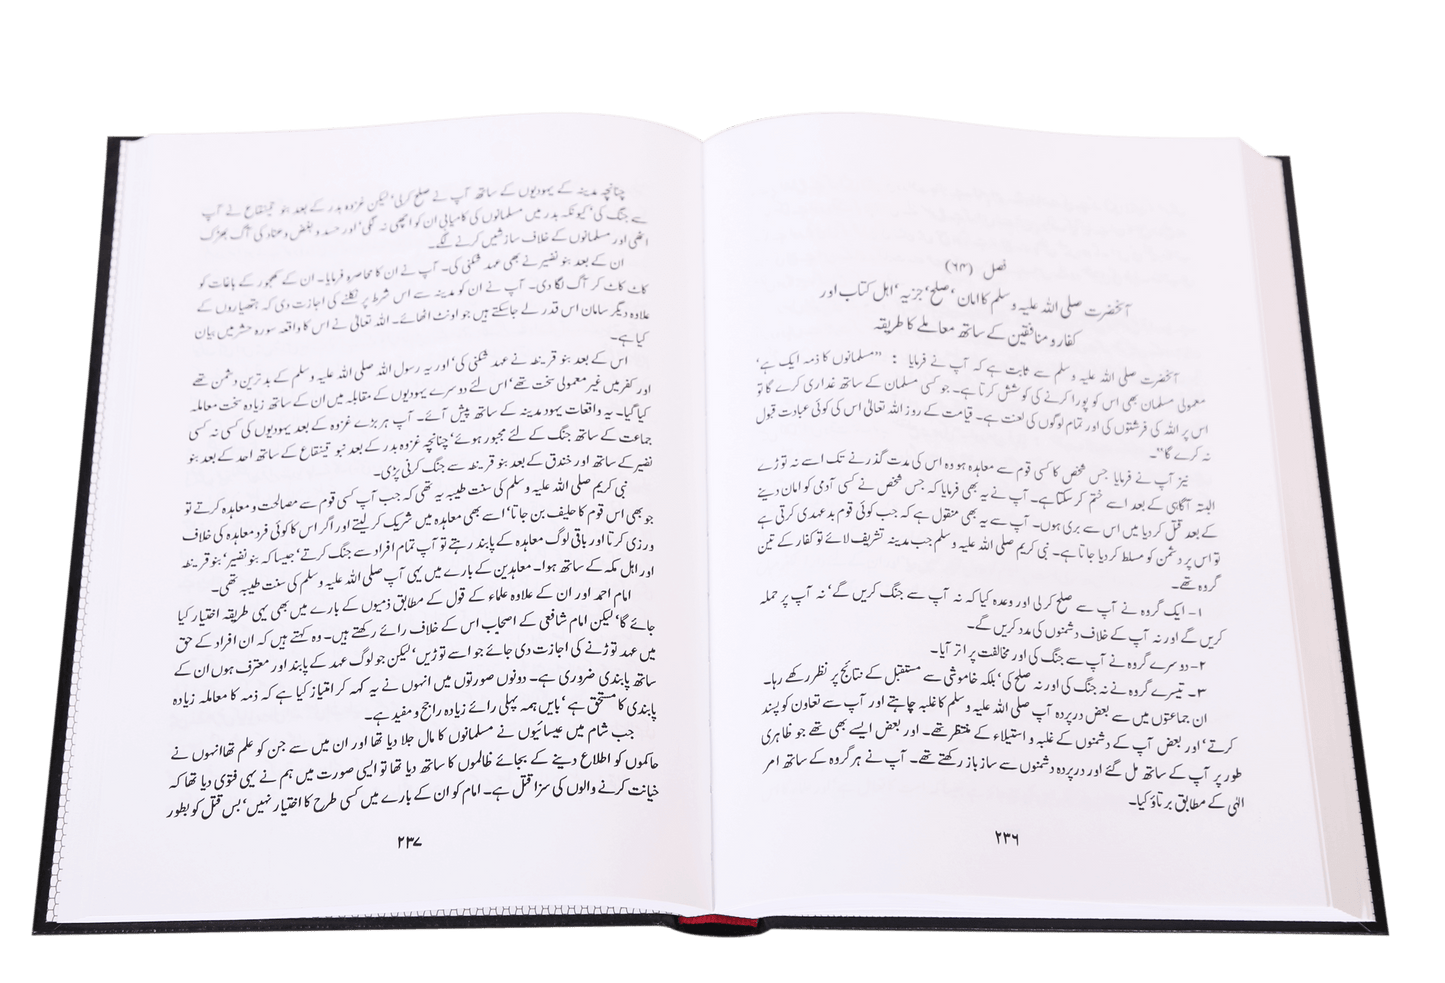 فصل (۶۴)
آنحضرت صلی اللہ علیہ وسلم کا امان ‘صلح‘ جزیہ ‘اہل کتاب اور
کفار و منافقین کے ساتھ معاملے کا طریقہ
آنحضرت صلی اللہ علیہ وسلم سے ثابت ہے کہ آپ نے فرمایا : "مسلمانوں کا ذمہ ایک ہے‘
معمولی مسلمان بھی اس کو پورا کرنے کی کوشش کرتا ہے۔ جو کسی مسلمان کے ساتھ غداری کرے گا تو
اس پر اللہ کی فرشتوں کی اور تمام لوگوں کی لعنت ہے۔ قیامت کے روز اللہ تعالیٰ اس کی کوئی عبادت قبول
نہ کرے گا"۔
نیز آپ نے فرمایا جس شخص کا کسی قوم سے معاہدہ ہو وہ اس کی مدت گذرنے تک اسے نہ توڑے
البتہ آگاہی کے بعد اسے ختم کر سکتا ہے۔ آپ نے یہ بھی فرمایا کہ جس شخص نے کسی آدمی کو امان دینے
کے بعد قتل کر دیا میں اس سے بری ہوں۔ آپ سے یہ بھی منقول ہے کہ جب کوئی قوم بدعہدی کرتی ہے
تو اس پر دشمن کو مسلط کر دیا جاتا ہے۔ نبی کریم صلی اللہ علیہ وسلم جب مدینہ تشریف لائے تو کفار کے تین
گروہ تھے۔
۱۔ ایک گروہ نے آپ سے صلح کر لی اور وعدہ کیا کہ نہ آپ سے جنگ کریں گے‘ نہ آپ پر حملہ
کریں گے اور نہ آپ کے خلاف دشمنوں کی مدد کریں گے۔
۲۔ دوسرے گروہ نے آپ سے جنگ کی اور مخالفت پر اتر آیا۔
۳۔ تیسرے گروہ نے نہ جنگ کی اور نہ صلح کی‘ بلکہ خاموشی سے مستقبل کے نتائج پر نظر رکھے رہا۔
ان جماعتوں میں سے بعض درپردہ آپ صلی اللہ علیہ وسلم کا غلبہ چاہتے اور آپ سے تعاون کو پسند
کرتے‘ اور بعض آپ کے دشمنوں کے غلبہ و استیلاء کے منتظر تھے۔ اور بعض ایسے بھی تھے جو ظاہری
طور پر آپ کے ساتھ مل گئے اور درپردہ دشمنوں سے ساز باز رکھتے تھے۔ آپ نے ہر گروہ کے ساتھ امر
الٰہی کے مطابق برتاؤ کیا۔
۲۳۶
چنانچہ مدینہ کے یہودیوں کے ساتھ آپ نے صلح کرلی‘ لیکن غزوہ بدر کے بعد بنو قینقاع نے آپ
سے جنگ کی‘ کیونکہ بدر میں مسلمانوں کی کامیابی ان کو اچھی نہ لگی‘ اور حسد و بغض و عناد کی آگ بھڑک
اٹھی اور مسلمانوں کے خلاف سازشیں کرنے لگے۔
ان کے بعد بنو نضیر نے بھی عہد شکنی کی۔ آپ نے ان کا محاصرہ فرمایا۔ ان کے کھجور کے باغات کو
کاٹ کاٹ کر آگ لگا دی۔ آپ نے ان کو مدینہ سے اس شرط پر نکلنے کی اجازت دی کہ ہتھیاروں کے
علاوہ دیگر سامان اس قدر لے جاسکتے ہیں جو اونٹ اٹھائے۔ اللہ تعالیٰ نے اس کا واقعہ سورہ حشر میں بیان
کیا ہے۔
اس کے بعد بنو قریظہ نے عہد شکنی کی‘ اور یہ رسول اللہ صلی اللہ علیہ وسلم کے بدترین دشمن تھے
اور کفر میں غیر معمولی سخت تھے‘ اس لئے دوسرے یہودیوں کے مقابلہ میں ان کے ساتھ زیادہ سخت معاملہ
کیا گیا۔ یہ واقعات یہود مدینہ کے ساتھ پیش آئے۔ آپ ہر بڑے غزوہ کے بعد یہودیوں کی کسی نہ کسی
جماعت کے ساتھ جنگ کے لئے مجبور ہوئے‘ چنانچہ غزوہ بدر کے بعد نبو قینقاع کے ساتھ احد کے بعد بنو
نضیر کے ساتھ اور خندق کے بعد بنو قریظہ سے جنگ کرنی پڑی۔
نبی کریم صلی اللہ علیہ وسلم کی سنت طیبہ یہ تھی کہ جب آپ کسی قوم سے مصالحت و معاہدہ کرتے تو
جو بھی اس قوم کا حلیف بن جاتا‘ اسے بھی معاہدہ میں شریک کر لیتے اور اگر اس کا کوئی فرد معاہدہ کی خلاف
ورزی کرتا اور باقی لوگ معاہدہ کے پابند رہتے تو آپ تمام افراد سے جنگ کرتے‘ جیسا کہ بنو نضیر‘ بنو قریظہ
اور اہل مکہ کے ساتھ ہوا۔ معاہدین کے بارے میں یہی آپ صلی اللہ علیہ وسلم کی سنت طیبہ تھی۔
امام احمد اور ان کے علاوہ علماء کے قول کے مطابق ذمیوں کے بارے میں بھی یہی طریقہ اختیار کیا
جائے گا‘ لیکن امام شافعی کے اصحاب اس کے خلاف رائے رکھتے ہیں۔ وہ کہتے ہیں کہ ان افراد کے حق
میں عہد توڑنے کی اجازت دی جائے جو اسے توڑیں‘ لیکن جو لوگ عہد کے پابند اور معترف ہوں ان کے
ساتھ پابندی ضروری ہے۔ دونوں صورتوں میں انہوں نے یہ کہہ کر امتیاز کیا ہے کہ ذمہ کا معاملہ زیادہ
پابندی کا مستحق ہے‘ بایں ہمہ پہلی رائے زیادہ راجح و مفید ہے۔
جب شام میں عیسائیوں نے مسلمانوں کا مال جلا دیا تھا اور ان میں سے جن کو علم تھا انہوں نے
حاکموں کو اطلاع دینے کے بجائے ظالموں کا ساتھ دیا تھا تو ایسی صورت میں ہم نے یہی فتویٰ دیا تھا کہ
خیانت کرنے والوں کی سزا قتل ہے۔ امام کو ان کے بارے میں کسی طرح کا اختیار نہیں‘ بس قتل کو بطور
۲۳۷